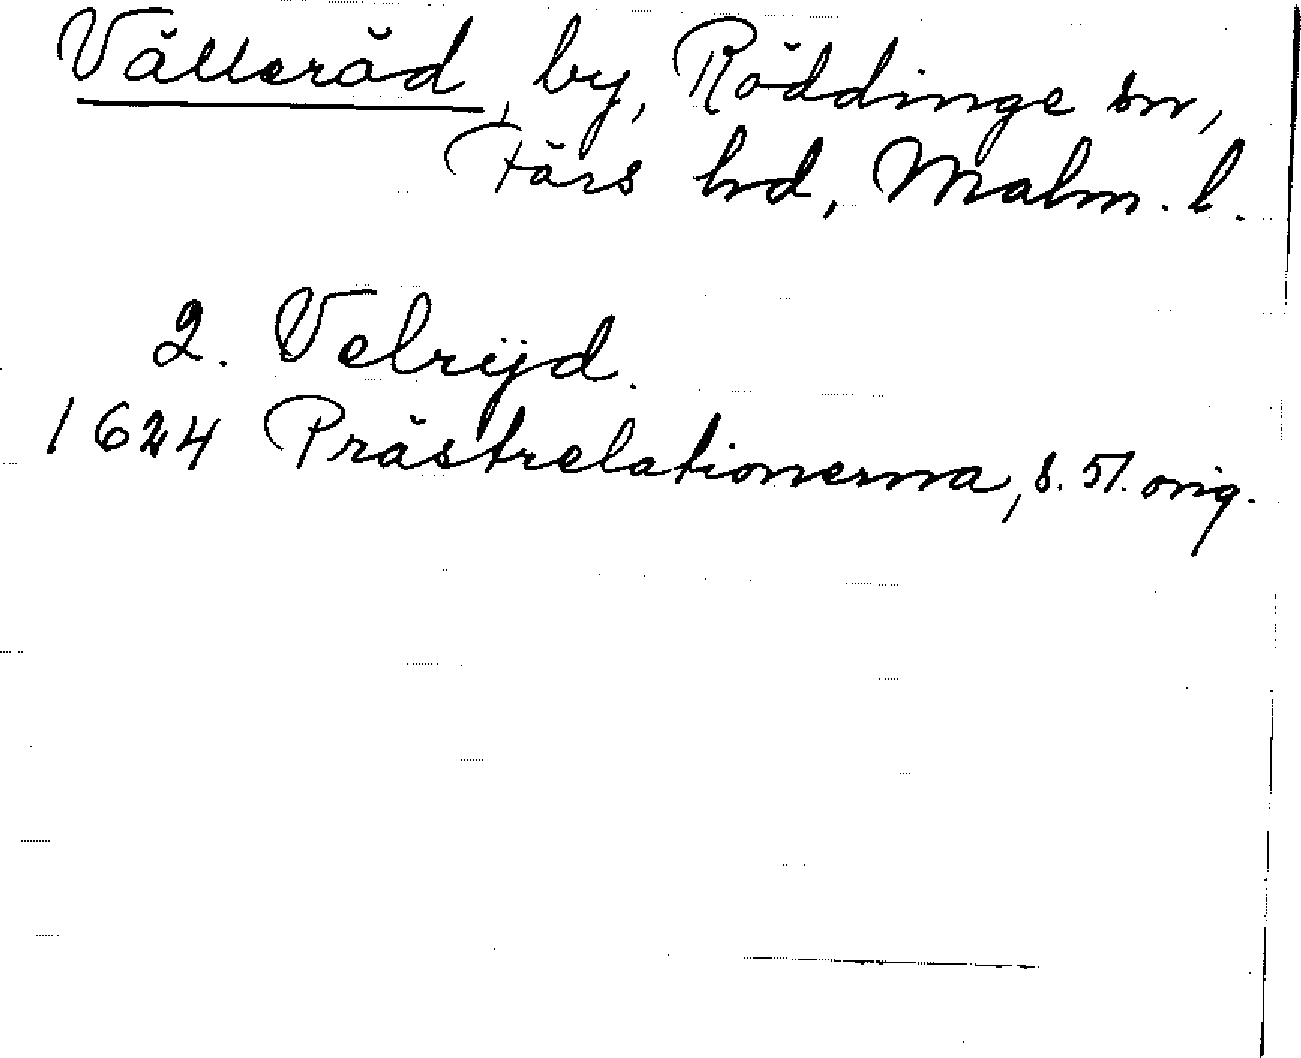 Välleröd, by, Röddinge sn,
Färs hd, Malm. l.
2. Velrijd.
1624 Prästrelationerna, s. 51. orig.